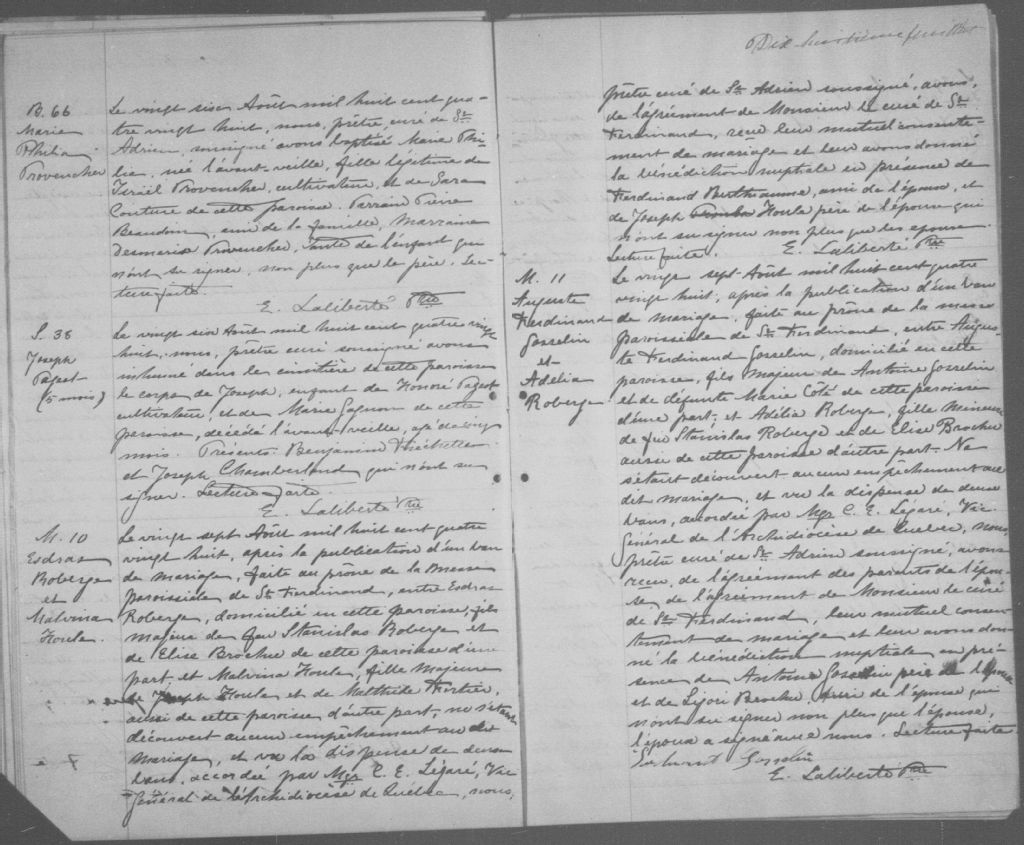 B. 66
Marie
Philia
Provencher
Le vingt six Août mil huit cent qua-
tre vingt huit, nous, prêtre, curé de St
Adrien, soussigné avons baptisé Marie Phi-
lia, née l'avant-veille, fille légitime de
Israël Provencher, cultivateur, et de Sara
Couture de cette paroisse. Parrain Pierre
Beaudoin, ami de la famille, Marraine
Desmarise Provencher, tante de l'enfant qui
n'ont su signer, non plus que le père. Lec-
ture faite.
E. Laliberté Ptre
S. 38
Joseph
Paget
(5 mois)
Le vingt six Août mil huit cent quatre vingt
huit, nous, prêtre curé soussigné avons
inhumé dans le cimetière de cette paroisse
le corps de Joseph, enfant de Honoré Paget
cultivateur, et de Marie Gagnon de cette
paroisse, décédé l'avant-veille, agé de cinq
mois. Présents Benjamin
et Joseph Chamberland qui n'ont su
signer. Lecture faite.
E. Laliberté Ptre
M. 10
Esdras
Roberge
et
Malvina
Houle.
Le vingt sept Août mil huit cent quatre
vingt huit, après la publication d'un ban
de mariage, faite au prône de la Messe
paroissiale de St Ferdinand, entre Esdras
Roberge, domicilié en cette paroisse, fils
majeur de feu Stanislas Roberge et
de Elise Brochu de cette paroisse d'une
part et Malvina Houle, fille Majeure
de Joseph Houle et de Malthide Fortier,
aussi de cette paroisse d'autre part, ne s'étant
découvert aucun empêchement au dit
Mariage, et vu la dispense de deux
bans, accordée par Mgr C. E. Légaré, Vic.
Général de l'Archidiocèse de Québec, nous,
Dix huitième feuillet
prêtre curé de St Adrien soussigné, avons,
de l'agrément de Monsieur le curé de St
Ferdinand, reçu leur mutuel consente-
ment de mariage et leur avons donné
la bénédiction nuptiale en présence de
Ferdinand Berthiaume, ami de l'époux, et
de Joseph Houle père de l'épouse qui
n'ont su signer non plus que les époux.
Lecture faite. E. Laliberté Ptre
M. 11
Auguste
Ferdinand
Gosselin
et
Adélia
Roberge
Le vingt sept Août mil huit cent quatre
vingt huit, après la publication d'un ban
de mariage, faite au prône de la messe
paroissiale de St Ferdinand, entre Augus-
te Ferdinand Gosselin, domicilié en cette
paroisse, fils Majeur de Antoine Gosselin
et de défunte Marie Côté de cette paroisse
d'une part, et Adélia Roberge, fille Mineure
de feu Stanislas Roberge et de Elise Brochu
aussi de cette paroisse d'autre part. Ne
s'étant découvert aucun empêchement au
dit mariage, et vu la dispense de deux
bans, accordée par Mgr C. E. Légaré, Vic.
Général de l'Archidiocèse de Québec, nous,
prêtre curé de St Adrien soussigné, avons
reçu, de l'agrément des parents de l'épou-
se, de l'agrément de Monsieur le curé
de St Ferdinand, leur mutuel consen-
tement de mariage et leur avons don-
né la bénédiction nuptiale en pré-
sence de Antoine Gosselin père de l'époux
et de Ligori Brochu, ami de l'épouse qui
n'ont su signer non plus que l'épouse,
l'époux a signé avec nous. Lecture faite
Gosselin
E. Laliberté Ptre